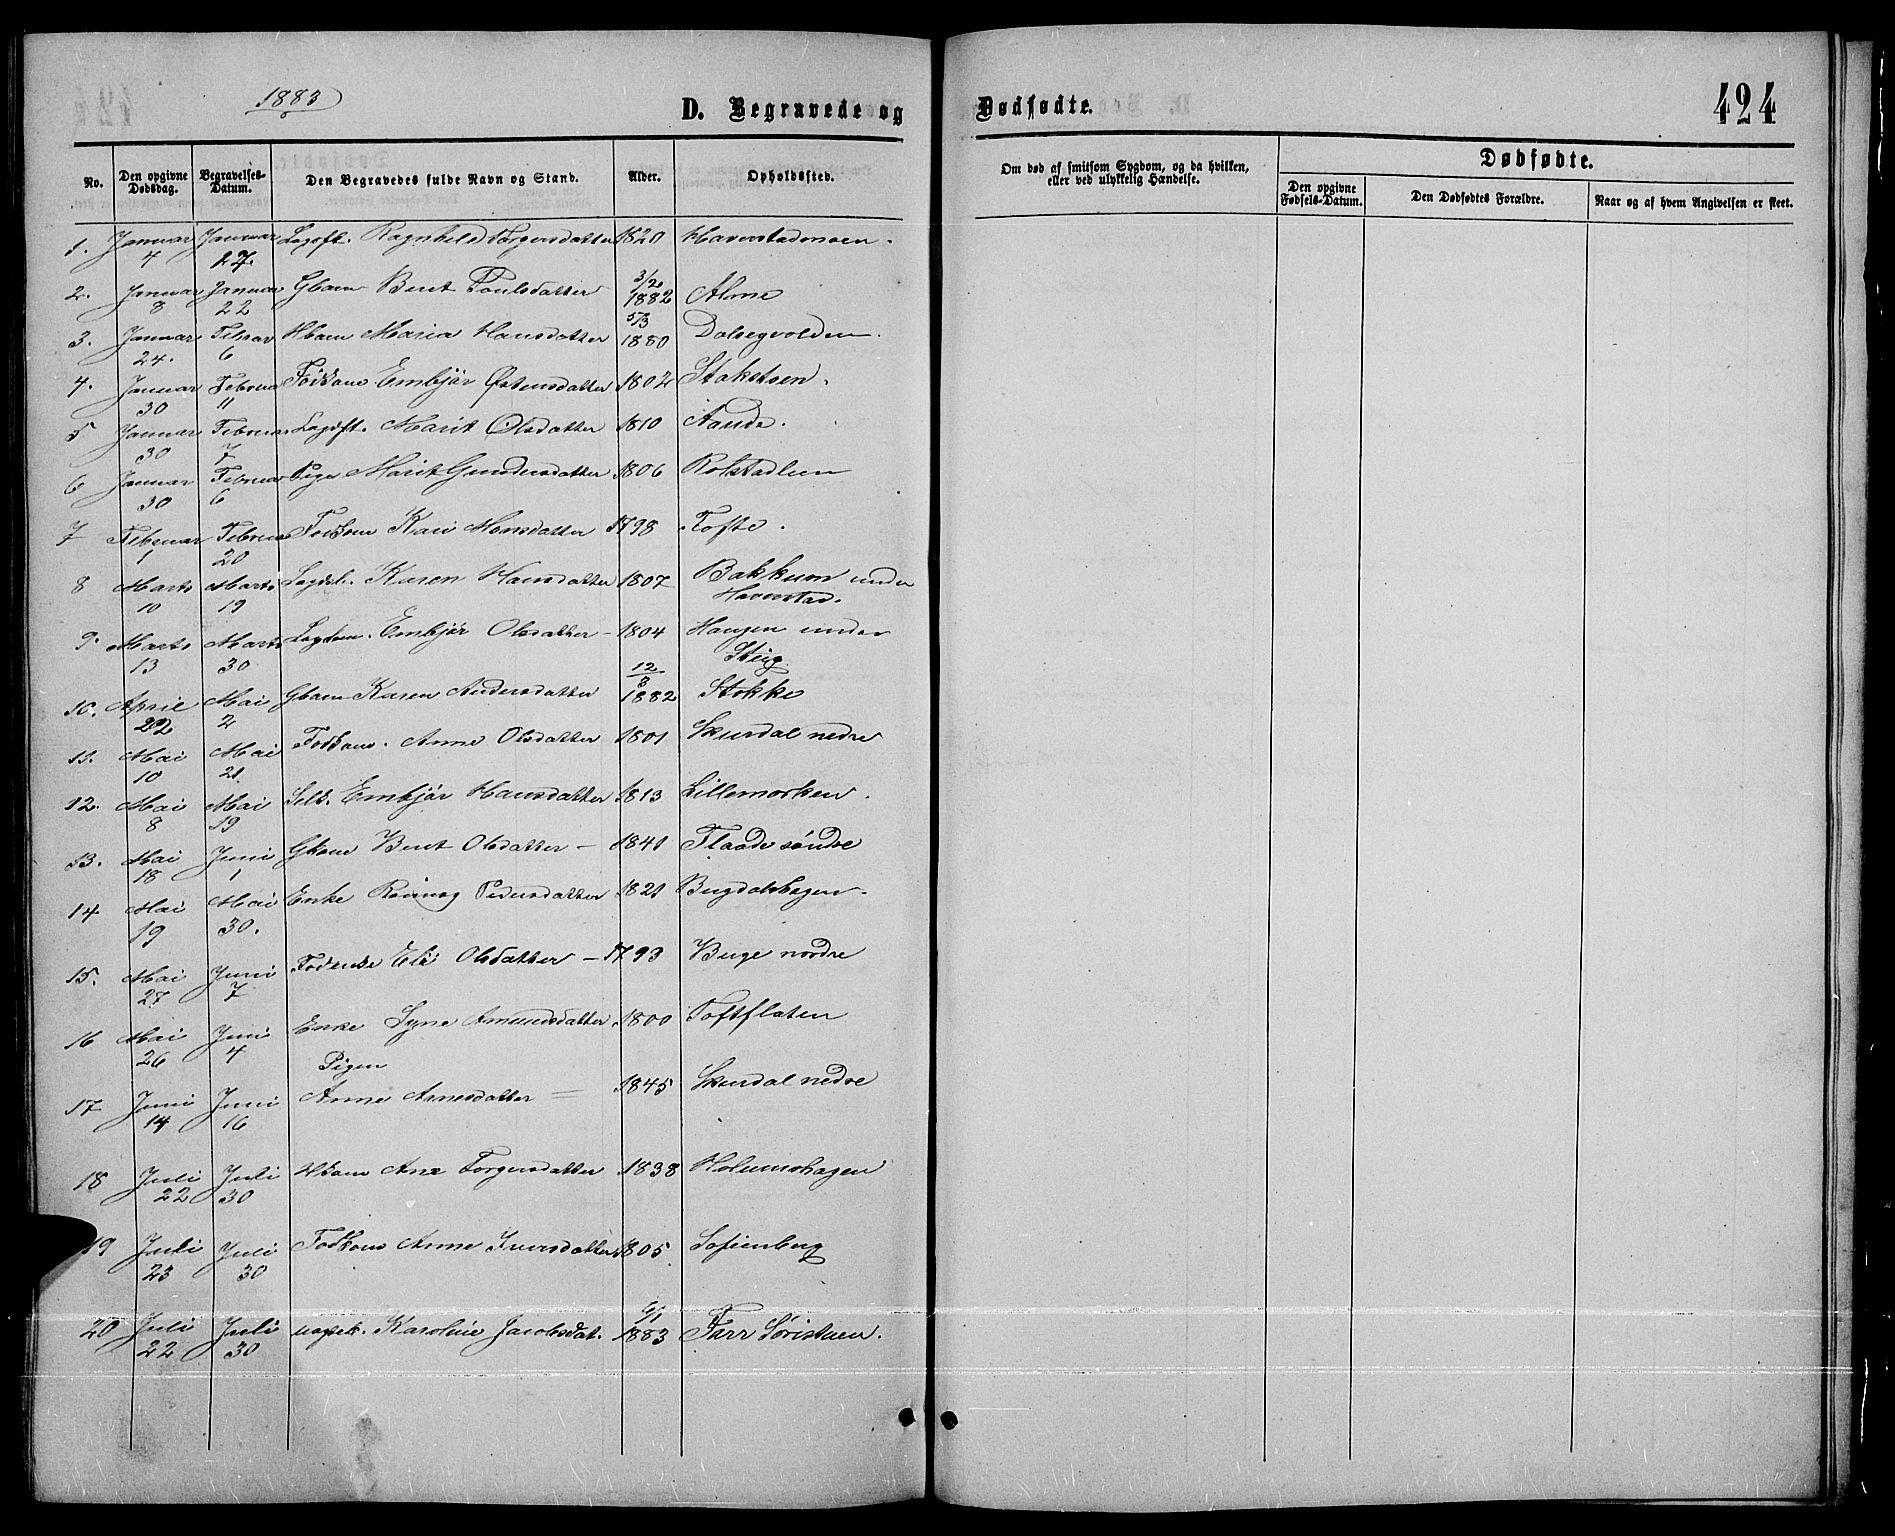 1883
D. Begravede og Dødfødte. 424
No. Den opgivne Dødsdag. Begravelses-Datum. Den Begravedes fulde Navn og Stand. Alder. Opholdssted. Om død af smitsom Sygdom, og da hvilken, eller ved ulykkelig Hændelse. Dødfødte.
Den opgivne Fødsels-Datum. Den Dødfødtes Forældre. Naar og af hvem Angivelsen er skeet.
1. Januar 4 Januar 27. Lægsft. Ragnhild Torgersdatter 1820 Haverstadmoen.
2. Januar 8 Januar 22 Gbarn Berit Poulsdatter 3/2 1882 Alme
3. Januar 24. Februar 6 Hbarn Maria Hansdatter 5/3 1880 Dalsegvolden.
4. Januar 30 Februar 11 Fødkone Embjør Østensdatter 1802 Stakstoen.
5 Januar 30 Februar 7 Lægsft. Marit Olsdatter 1810 Aande.
6 Januar 30 Februar 6 Pige Marit Gundersdatter 1806 Rolstadlien
7 Februar 1 Februar 20 Fødkone Kari Monsdatter 1798 Tofte.
8 Marts 10 Marts 19 Karen Hansdatter 1807 Bakkum under Haverstad.
9. Marts 13 Marts 30 Embjør Olsdatter - 1804 Haugen under Steig
10. April 22 Mai 2 Gbarn Karen Andersdatter 12/8 1882 Stokke
11. Mai 10 Mai 21. Fødkone. Anne Olsdatter 1801 Skurdal nedre
12. Mai 8 Mai 19 Selv. Embjør Hansdatter 1813 Lillemorken.
13. Mai 18 Juni 1 Gkone Berit Olsdatter - 1841 Flaade søndre
14 Mai 19 Mai 30. Enke Rønnog Pedersdatter 1821 Bugdalshagen.
15. Mai 27 Juni 7 Fødenke Eli Olsdatter - 1793 Buge nordre
16 Mai 26 Juni 4 Enke Syne Amundsdatter 1800 Toftflaten
17 Juni 14 Juni 16 Pigen Anne Arnesdatter 1845 Skurdal nedre
18 Juli 22 Juli 30 Hkone Ane Torgersdatter 1838 Holumshagen
19 Juli 23 Juli 30 Fødkone Anne Iversdatter 1805 Sofienberg
20 Juli 22 Juli 30 uægtek. Karoline Jacobsdat. 6/1 1883 Farr Søristuen.